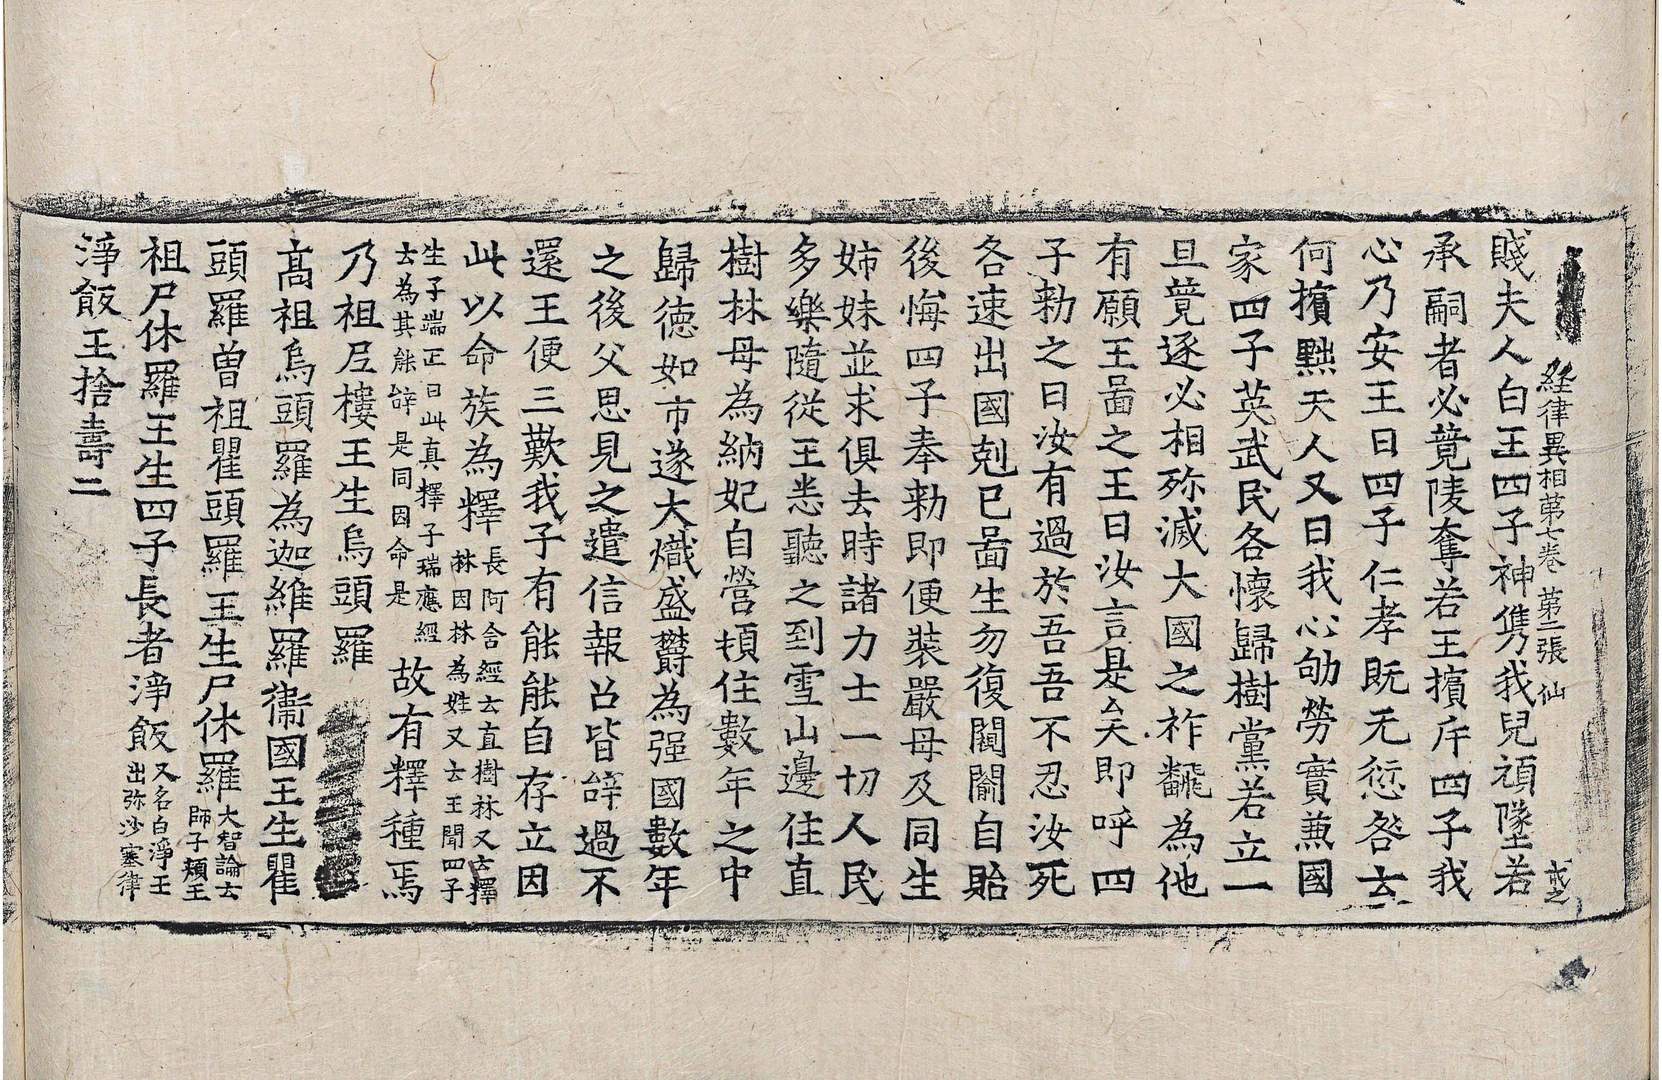 経律異相苐七卷 苐二張 仙
賤夫人白王四子神雋我兒頑墜若
承嗣者必竟陵奪若王擯斥四子我
心乃安王曰四子仁孝既无愆咎云
何擯黜夫人又曰我心劬勞實兼國
家四子英武民各懷歸樹黨若立一
旦競逐必相殄滅大國之祚飜為他
有願王啚之王曰汝言是矣即呼四
子勑之曰汝有過於吾吾不忍汝死
各速出國剋已啚生勿復闚𨵦自貽
後悔四子奉勑即便裝嚴母及同生
姉妹並求俱去時諸力士一切人民
多樂隨從王悉聽之到雪山邊住直
樹林母為納妃自營頓住數年之中
歸德如市遂大熾盛欝為强國數年
之後父思見之遣信報召皆辝過不
還王便三歎我子有能能自存立因
此以命族為釋長阿含經云直樹林又云釋
林因林為姓又云王聞四子
生子端正曰此真釋子瑞應經
云為其能辝是同因命是
故有釋種焉
乃祖𡰱樓王生烏頭羅
高祖烏頭羅為迦維羅衞國王生瞿
頭羅曽祖瞿頭羅王生尸休羅大智論云
師子頰王
祖尸休羅王生四子長者淨飯又名白淨王
出弥沙塞律
淨飯王捨壽二